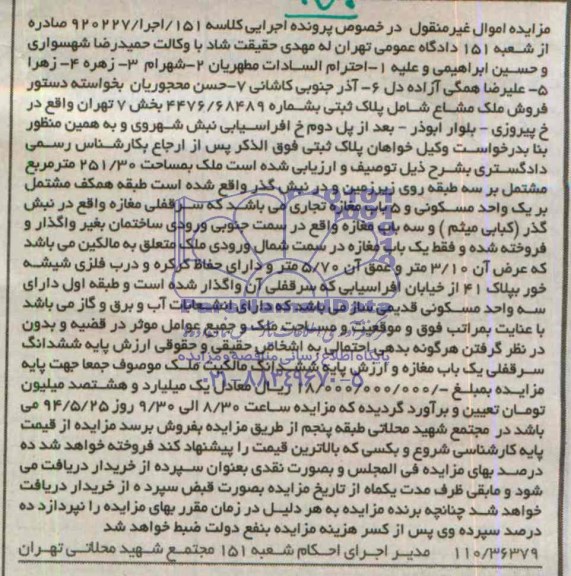 مزایده اموال غیرمنقول در خصوص پرونده اجرایی کلاسه ۱۵۱/اجرا/۹۲۰۲۲۷ صادره
از شعبه ۱۵۱ دادگاه عمومی تهران له مهدی حقیقت شاد با وکالت حمیدرضا شهسواری
و حسین ابراهیمی و علیه ۱-احترام السادات مطهریان ۲-شهرام ۳- زهره ۴- زهرا
۵- علیرضا همگی آزاده دل ۶- آذر جنوبی کاشانی ۷-حسن محجوریان بخواسته دستور
فروش ملک مشاع شامل پلاک ثبتی بشماره ۴۴۷۶/۶۸۴۸۹ بخش ۷ تهران واقع در
خ پیروزی - بلوار ابوذر - بعد از پل دوم خ افراسیابی نبش شهروی و به همین منظور
بنا بدرخواست وکیل خواهان پلاک ثبتی فوق الذکر پس از ارجاع بکارشناس رسمی
دادگستری بشرح ذیل توصیف و ارزیابی شده است ملک بمساحت ۲۵۱/۳۰ مترمربع
مشتمل بر سه طبقه روی زیرزمین و در نبش گذر واقع شده است طبقه همکف مشتمل
بر یک واحد مسکونی و ۵ باب مغازه تجاری می باشد که سرقفلی مغازه واقع در نبش
گذر (کبابی میثم) و سه باب مغازه واقع در سمت جنوبی ورودی ساختمان بغیر واگذار و
فروخته شده و فقط یک باب مغازه در سمت شمال ورودی ملک متعلق به مالکین می باشد
که عرض آن ۳/۱۰ متر و عمق آن ۵/۷۰ متر و دارای حفاظ کرکره و درب فلزی شیشه
خور بپلاک ۴۱ از خیابان افراسیابی که سرقفلی آن واگذار شده است و طبقه اول دارای
سه واحد مسکونی قدیمی ساز می باشد که دارای انشعابات آب و برق و گاز می باشد
با عنایت بمراتب فوق و موقعیت و مساحت ملک و جمیع عوامل موثر در قضیه و بدون
در نظر گرفتن هرگونه بدهی احتمالی به اشخاص حقیقی و حقوقی ارزش پایه ششدانگ
سرقفلی یک باب مغازه و ارزش پایه ششدانگ مالکیت ملک موصوف جمعا جهت پایه
مزایده بمبلغ -/۱۸/۰۰۰/۰۰۰/۰۰۰ ریال معادل یک میلیارد و هشتصد میلیون
تومان تعیین و برآورد گردیده که مزایده ساعت ۸/۳۰ الی ۹/۳۰ روز ۹۴/۵/۲۵ می
باشد در مجتمع شهید محلاتی طبقه پنجم از طریق مزایده بفروش برسد مزایده از قیمت
پایه کارشناسی شروع و بکسی که بالاترین قیمت را پیشنهاد کند فروخته خواهد شد ده
درصد بهای مزایده فی المجلس و بصورت نقدی بعنوان سپرده از خریدار دریافت می
شود و مابقی ظرف مدت یکماه از تاریخ مزایده بصورت قبض سپرده از خریدار دریافت
خواهد شد چنانچه برنده مزایده به هر دلیل در زمان مقرر بهای مزایده را نپردازد ده
درصد سپرده وی پس از کسر هزینه مزایده بنفع دولت ضبط خواهد شد
۱۱۰/۳۶۳۷۹ مدیر اجرای احکام شعبه ۱۵۱ مجتمع شهید محلاتی تهران
پایگاه اطلاع رسانی مناقصه و مزایده
۰۲۱-۸۸۳۴۹۶۷۰-۵